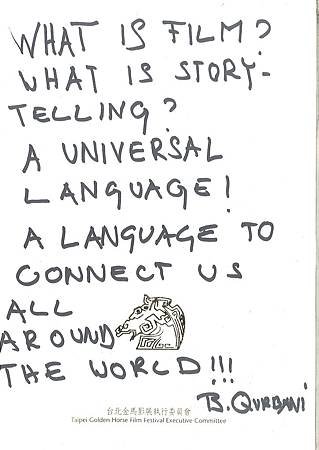 WHAT IS FILM?
WHAT IS STORY-
TELLING?
A UNIVERSAL
LANGUAGE!
A LANGUAGE TO
CONNECT US
ALL
AROUND
THE WORLD!!!
B. QURBANI
台北金馬影展執行委員會
Taipei Golden Horse Film Festival Executive Committee